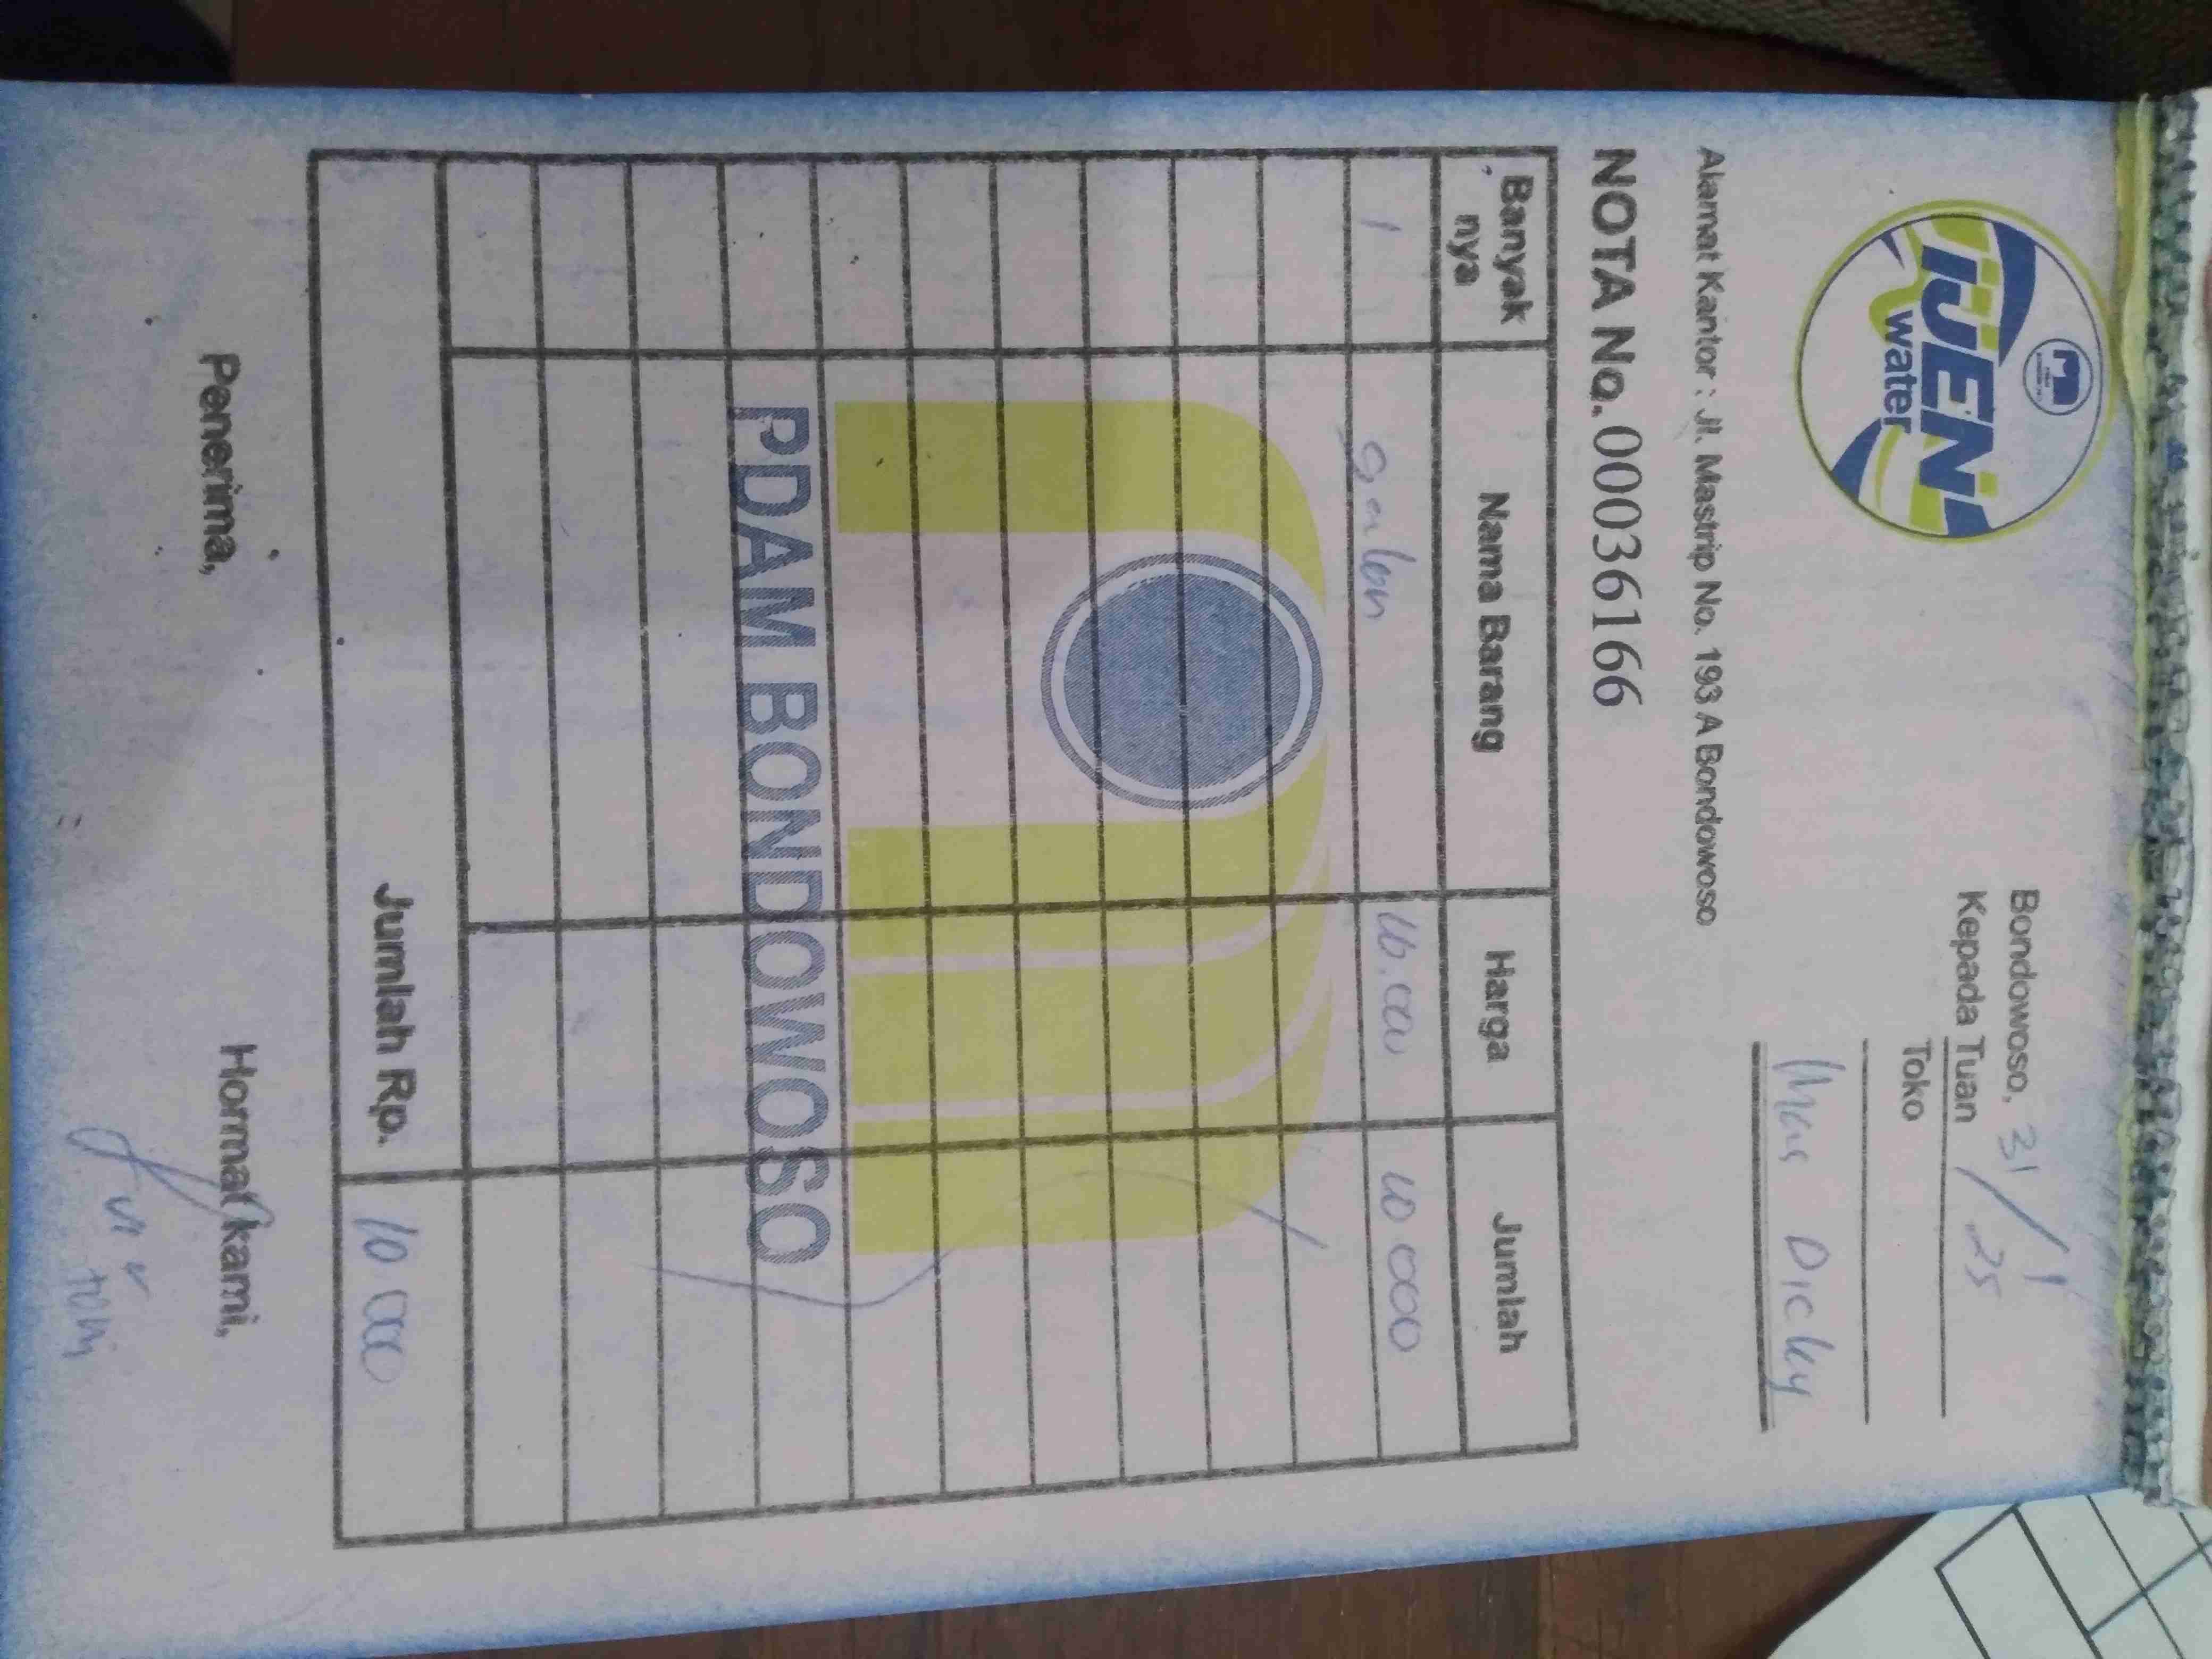 IJEN
water
Bondowoso, 31/1 25
Kepada Tuan
Toko
Mas Dicky
Alamat Kantor : Jl. Mastrip No. 193 A Bondowoso
NOTA No. 00036166
Banyak nya Nama Barang Harga Jumlah
1 Galon 10.000 10 000
PDAM BONDOWOSO
Jumlah Rp. 10 000
Penerima, Hormat kami,